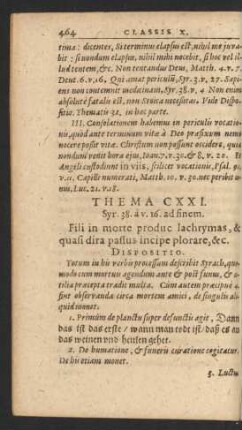 464 CLASSIS X.
tima: dicentes, Si terminus elapsus est, nihil me juva-
bit: si nondum elapsus, nihil mihi nocebit, si hoc vel il-
lud tentem, &c. Non tentandus Deus, Matth. 4. v. 7.
Deut. 6. v. 16. Qui amat periculũ, Syr. 3. v. 27. Sapi-
ens non contemnit medicinam, Syr. 38. v. 4 Non enim
absolutè fatalis est, non Stoica necessitas. Vide Dispo-
sitio. Thematis 32. in hoc parte.
III. Consolationem habemus in periculis vocatio-
nis, quod ante terminum vitæ à Deo præfixum nemo
nocere possit vitæ. Christum non possunt occidere, quia
nondum venit hora ejus, Joan. 7. v. 30. & 8. v. 20. Et
Angeli custodiunt in viis, scilicet vocationis, Psal. 91.
v. 11. Capilli numerati, Matth. 10. v. 30. nec peribit u-
nus, Luc. 21. v. 18.
THEMA CXXI.
Syr. 38. à v. 16. ad finem.
Fili in morte produc lachrymas, &
quasi dira passus incipe plorare, &c.
DISPOSITIO.
Totum in his verbis processum describit Syrach, quo-
modo cum mortuis agendum ante & post funus, & u-
tilia præcepta tradit multa. Cum autem præcipuè 4.
sint observanda circa mortem amici, de singulis ali-
quid monet.
1. Primùm de planctu super defunctis agit, Dann
das ist das erste / wann man todt ist / daß es an
das weinen und heulen gehet.
2. De humatione, & funeris curatione cogitatur.
De his etiam monet.
3. Luctu